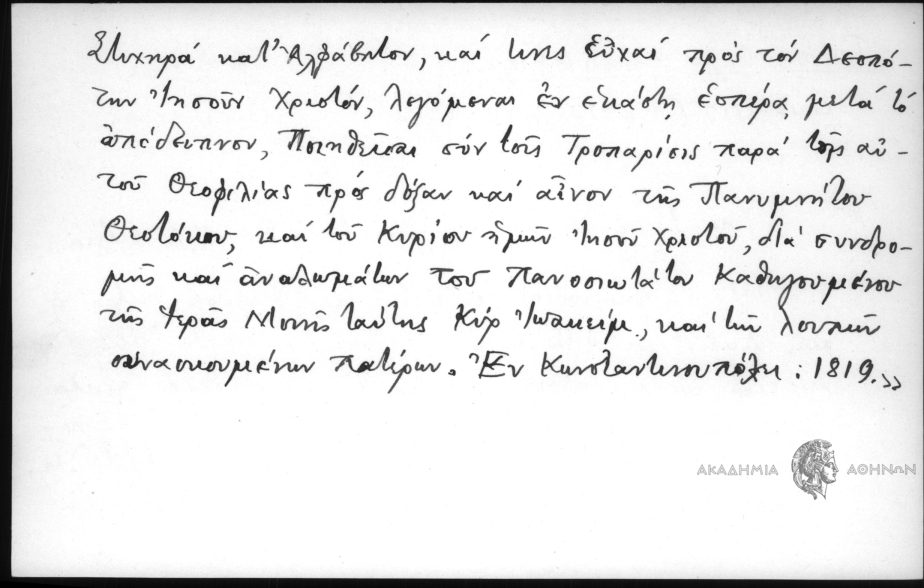 Στιχηρά κατ' Ἀλφάβητον, καί τινες Εὐχαί πρός τόν Δεσπό-
την Ἰησοῦν Χριστόν, λεγόμεναι ἐν ἑκάστῃ ἑσπέρᾳ μετά τό
ἀπόδειπνον, Ποιηθεῖσαι σύν τοῖς Τροπαρίοις παρά τῆς αὐ-
τοῦ Θεοφιλίας πρός δόξαν καί αἶνον τῆς Πανυμνήτου
Θεοτόκου, καί τοῦ Κυρίου ἡμῶν Ἰησοῦ Χριστοῦ, διά συνδρο-
μῆς καί ἀναλωμάτων τοῦ Πανοσιωτάτου Καθηγουμένου
τῆς Ἱερᾶς Μονῆς ταύτης Κύρ Ἰωακείμ, καί τῶν λοιπῶν
συνασκουμένων Πατέρων. Ἐν Κωνσταντινουπόλει : 1819.»
ΑΚΑΔΗΜΙΑ ΑΘΗΝΩΝ